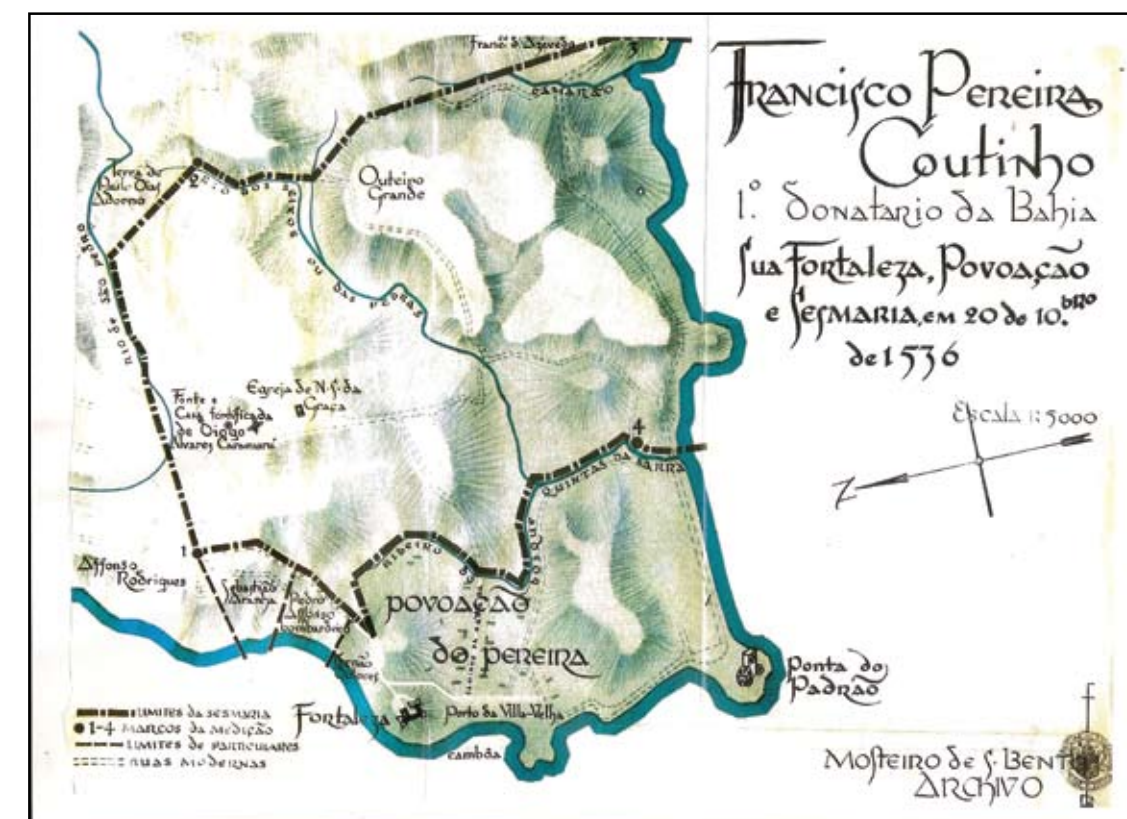 Francisco Pereira
Coutinho
1.º Donatario da Bahia
Sua Fortaleza, Povoação
e Sesmaria, em 20 de 10.bro
de 1536
Escala 1:5000
N
Franc.º d. Azevedo
3
CAMARÃO
Outeiro
Grande
Terra de
Dias
Adorno
2
RIO DOS SEIXOS
RIO DE SÃO PEDRO
RIO DAS
Egreja de N. S. da
Graça
Fonte e
Casa fortificada
de Diogo
Alvares Caramurú
4
QUINTAS DA BARRA
1
Affonso
Rodrigues
Sebastião
Aranha
Pedro
Affonso
bombardeiro
RIBEIRO DO
POVOAÇÃO
DO PEREIRA
Fortaleza
Porto da Villa-Velha
cambôa
Ponta do
Padrão
LIMITES da SESMARIA
1-4 MARCOS da MEDIÇÃO
LIMITES de PARTICULARES
RUAS MODERNAS
Mosteiro de S. Bento
ARCHIVO